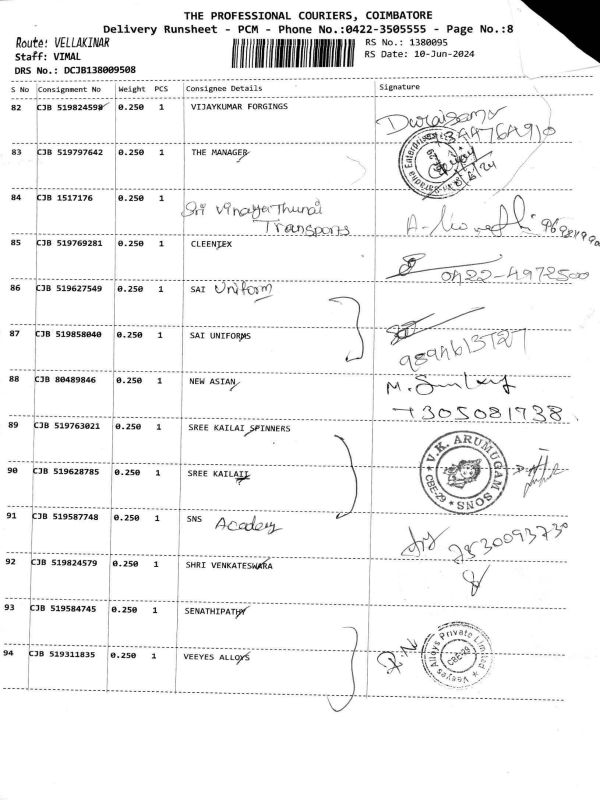 THE PROFESSIONAL COURIERS, COIMBATORE
Delivery Runsheet - PCM - Phone No.:0422-3505555 - Page No.:8
Route: VELLAKINAR
RS No.: 1380095
Staff: VIMAL
RS Date: 10-Jun-2024
DRS No.: DCJB138009508
S No Consignment No Weight PCS Consignee Details Signature
82 CJB 519824598 0.250 1 VIJAYKUMAR FORGINGS
83 CJB 519797642 0.250 1 THE MANAGER
84 CJB 1517176 0.250 1 Sri Vinayaga Thunai
Transports
85 CJB 519769281 0.250 1 CLEENTEX
0422-4972500
86 CJB 519627549 0.250 1 SAI Uniform
87 CJB 519858040 0.250 1 SAI UNIFORMS
9894613727
88 CJB 80489846 0.250 1 NEW ASIAN
7305081738
89 CJB 519763021 0.250 1 SREE KAILAI SPINNERS
V.K. ARUMUGAM SONS
CBE-29
90 CJB 519628785 0.250 1 SREE KAILAI
91 CJB 519587748 0.250 1 SNS Acadey
7530093730
92 CJB 519824579 0.250 1 SHRI VENKATESWARA
93 CJB 519584745 0.250 1 SENATHIPATHY
94 CJB 519311835 0.250 1 VEEYES ALLOYS
Veeyes Alloys Private Limited
CBE-29